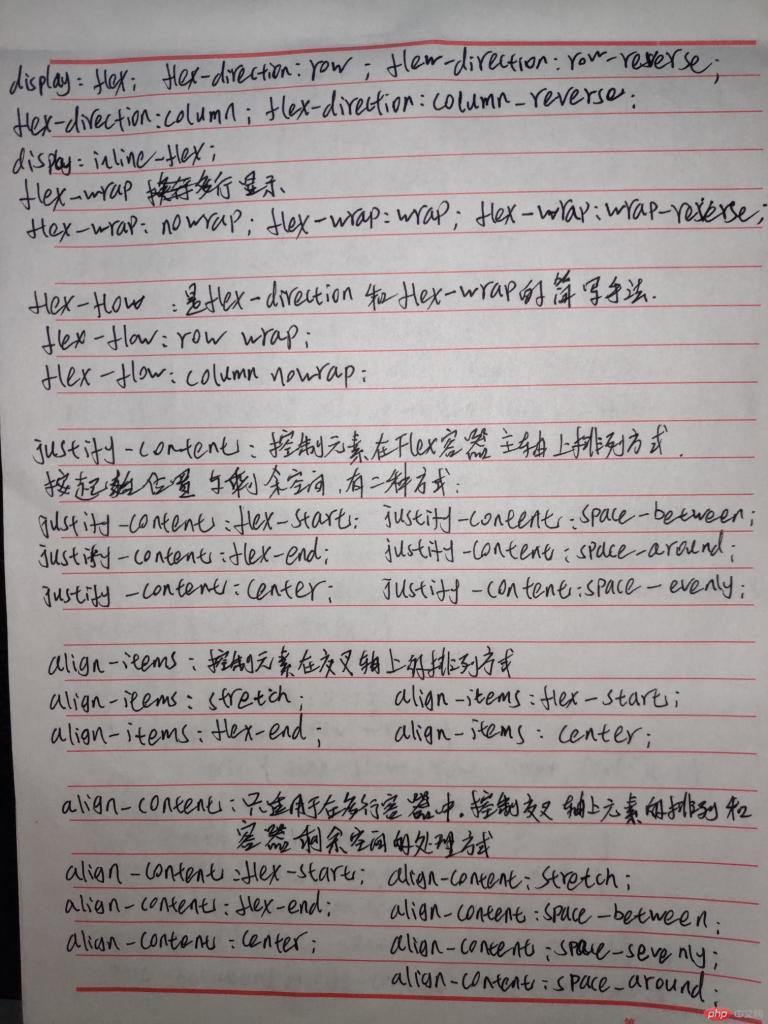 display: flex; flex-direction: row ; flew-direction: row-reserse;
flex-direction: column ; flex-direction: column_reverse;
display: inline-flex;
flex-wrap 换行多行显示
flex-wrap: nowrap; flex-wrap: wrap; flex-wrap: wrap-reserse;
flex-flow : 是flex-direction 和 flex-wrap的简写手法.
flex-flow: row wrap;
flex-flow: column nowrap;
justify-content: 控制元素在Flex容器主轴上排列方式.
按起始位置与剩余空间,有二种方式:
justify-content: flex-start; justify-content: space-between;
justify-content: flex-end; justify-content: space_around;
justify-content: center; justify-content: space-evenly;
align-items: 控制元素在交叉轴上的排列方式
align-items: stretch; align-items: flex-start;
align-items: flex-end; align-items: center;
align-content: 只适用于在多行容器中,控制交叉轴上元素的排列和
容器剩余空间的处理方式
align-content: flex-start; align-content: stretch;
align-content: flex-end; align-content: space-between;
align-content: center; align-content: space-sevenly;
align-content: space_around;
php 中文网